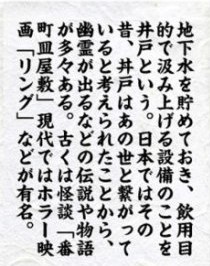 地下水を貯めておき、飲用目
的で汲み上げる設備のことを
井戸という。日本ではその
昔、井戸はあの世と繋がって
いると考えられたことから、
幽霊が出るなどの伝説や物語
が多々ある。古くは怪談「番
町皿屋敷」現代ではホラー映
画「リング」などが有名。